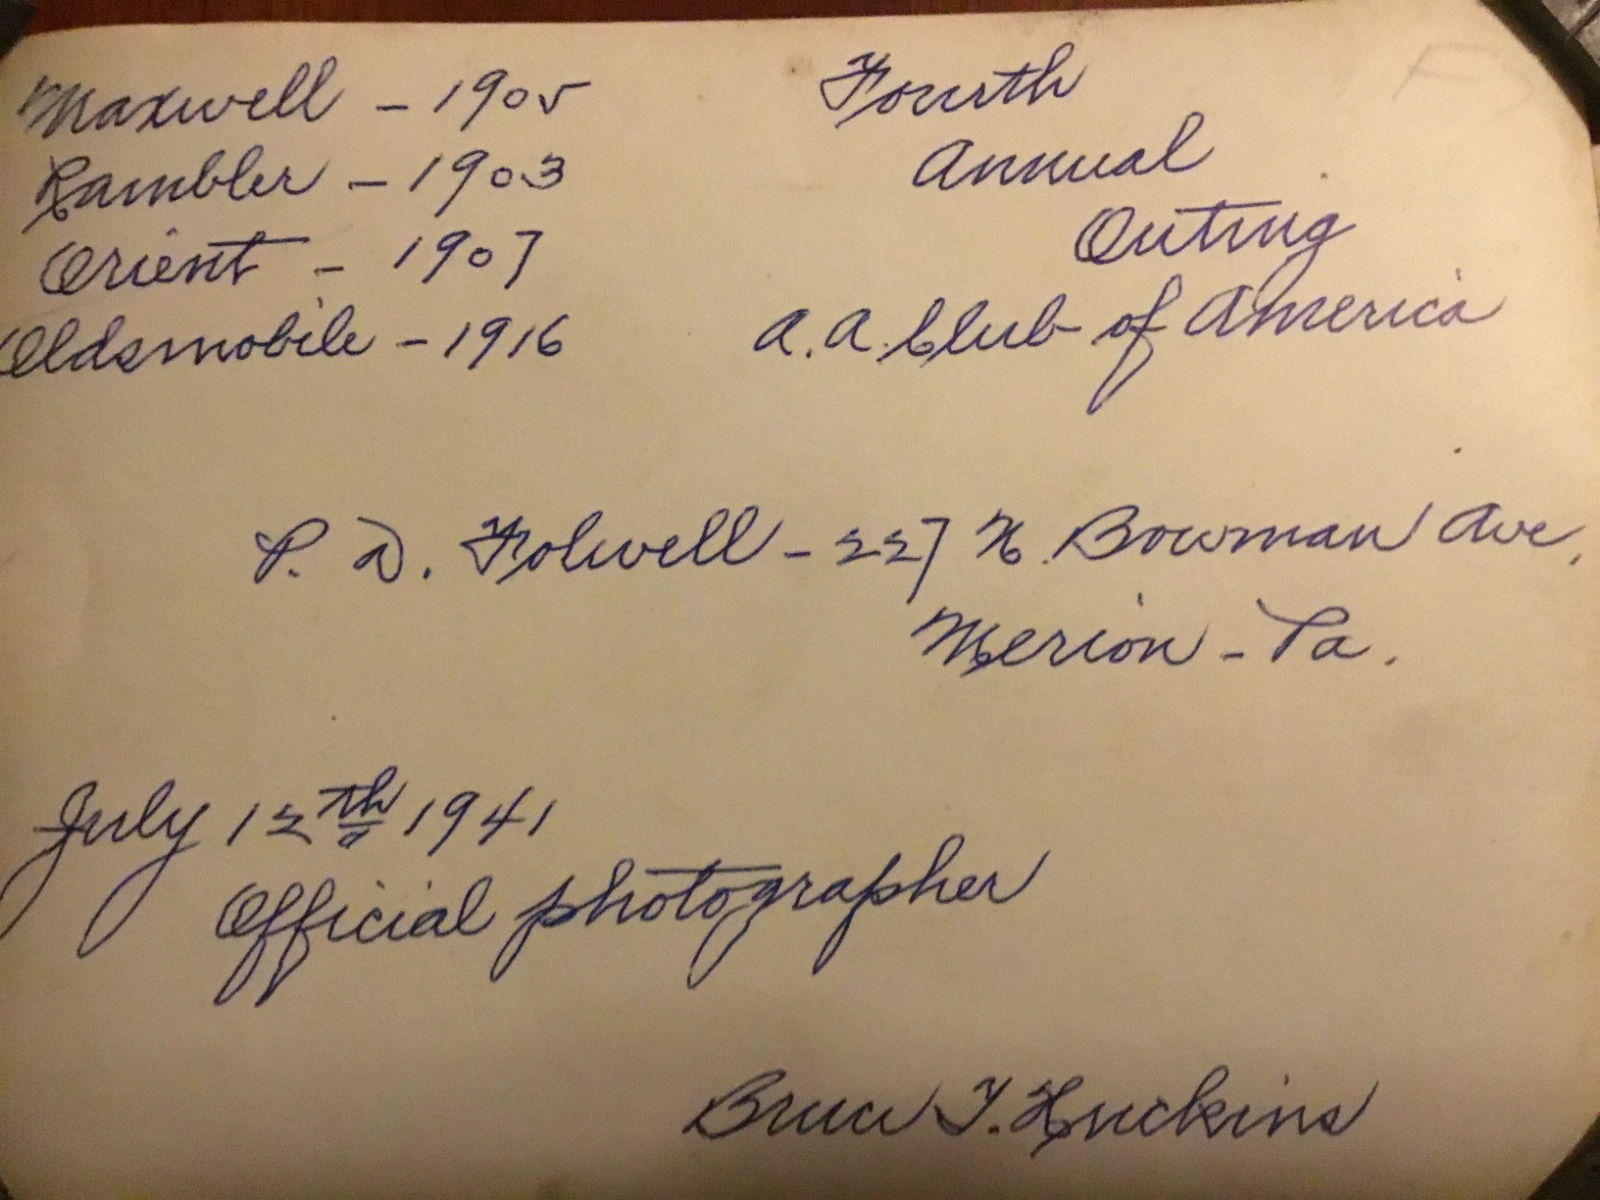 Maxwell - 1905
Rambler - 1903
Orient - 1907
Oldsmobile - 1916
Fourth
Annual
Outing
A. A. Club of America
P. D. Folwell - 227 N. Bowman Ave.
Merion - Pa.
July 12th 1941
Official photographer
Bruce T. Huckins